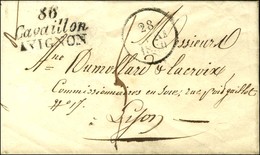 86
Cavaillon
AVIGNON
28
Messieurs
Dumollard & Lacroix
Commissionnaires en Soie, rue
n° 17.
Lyon